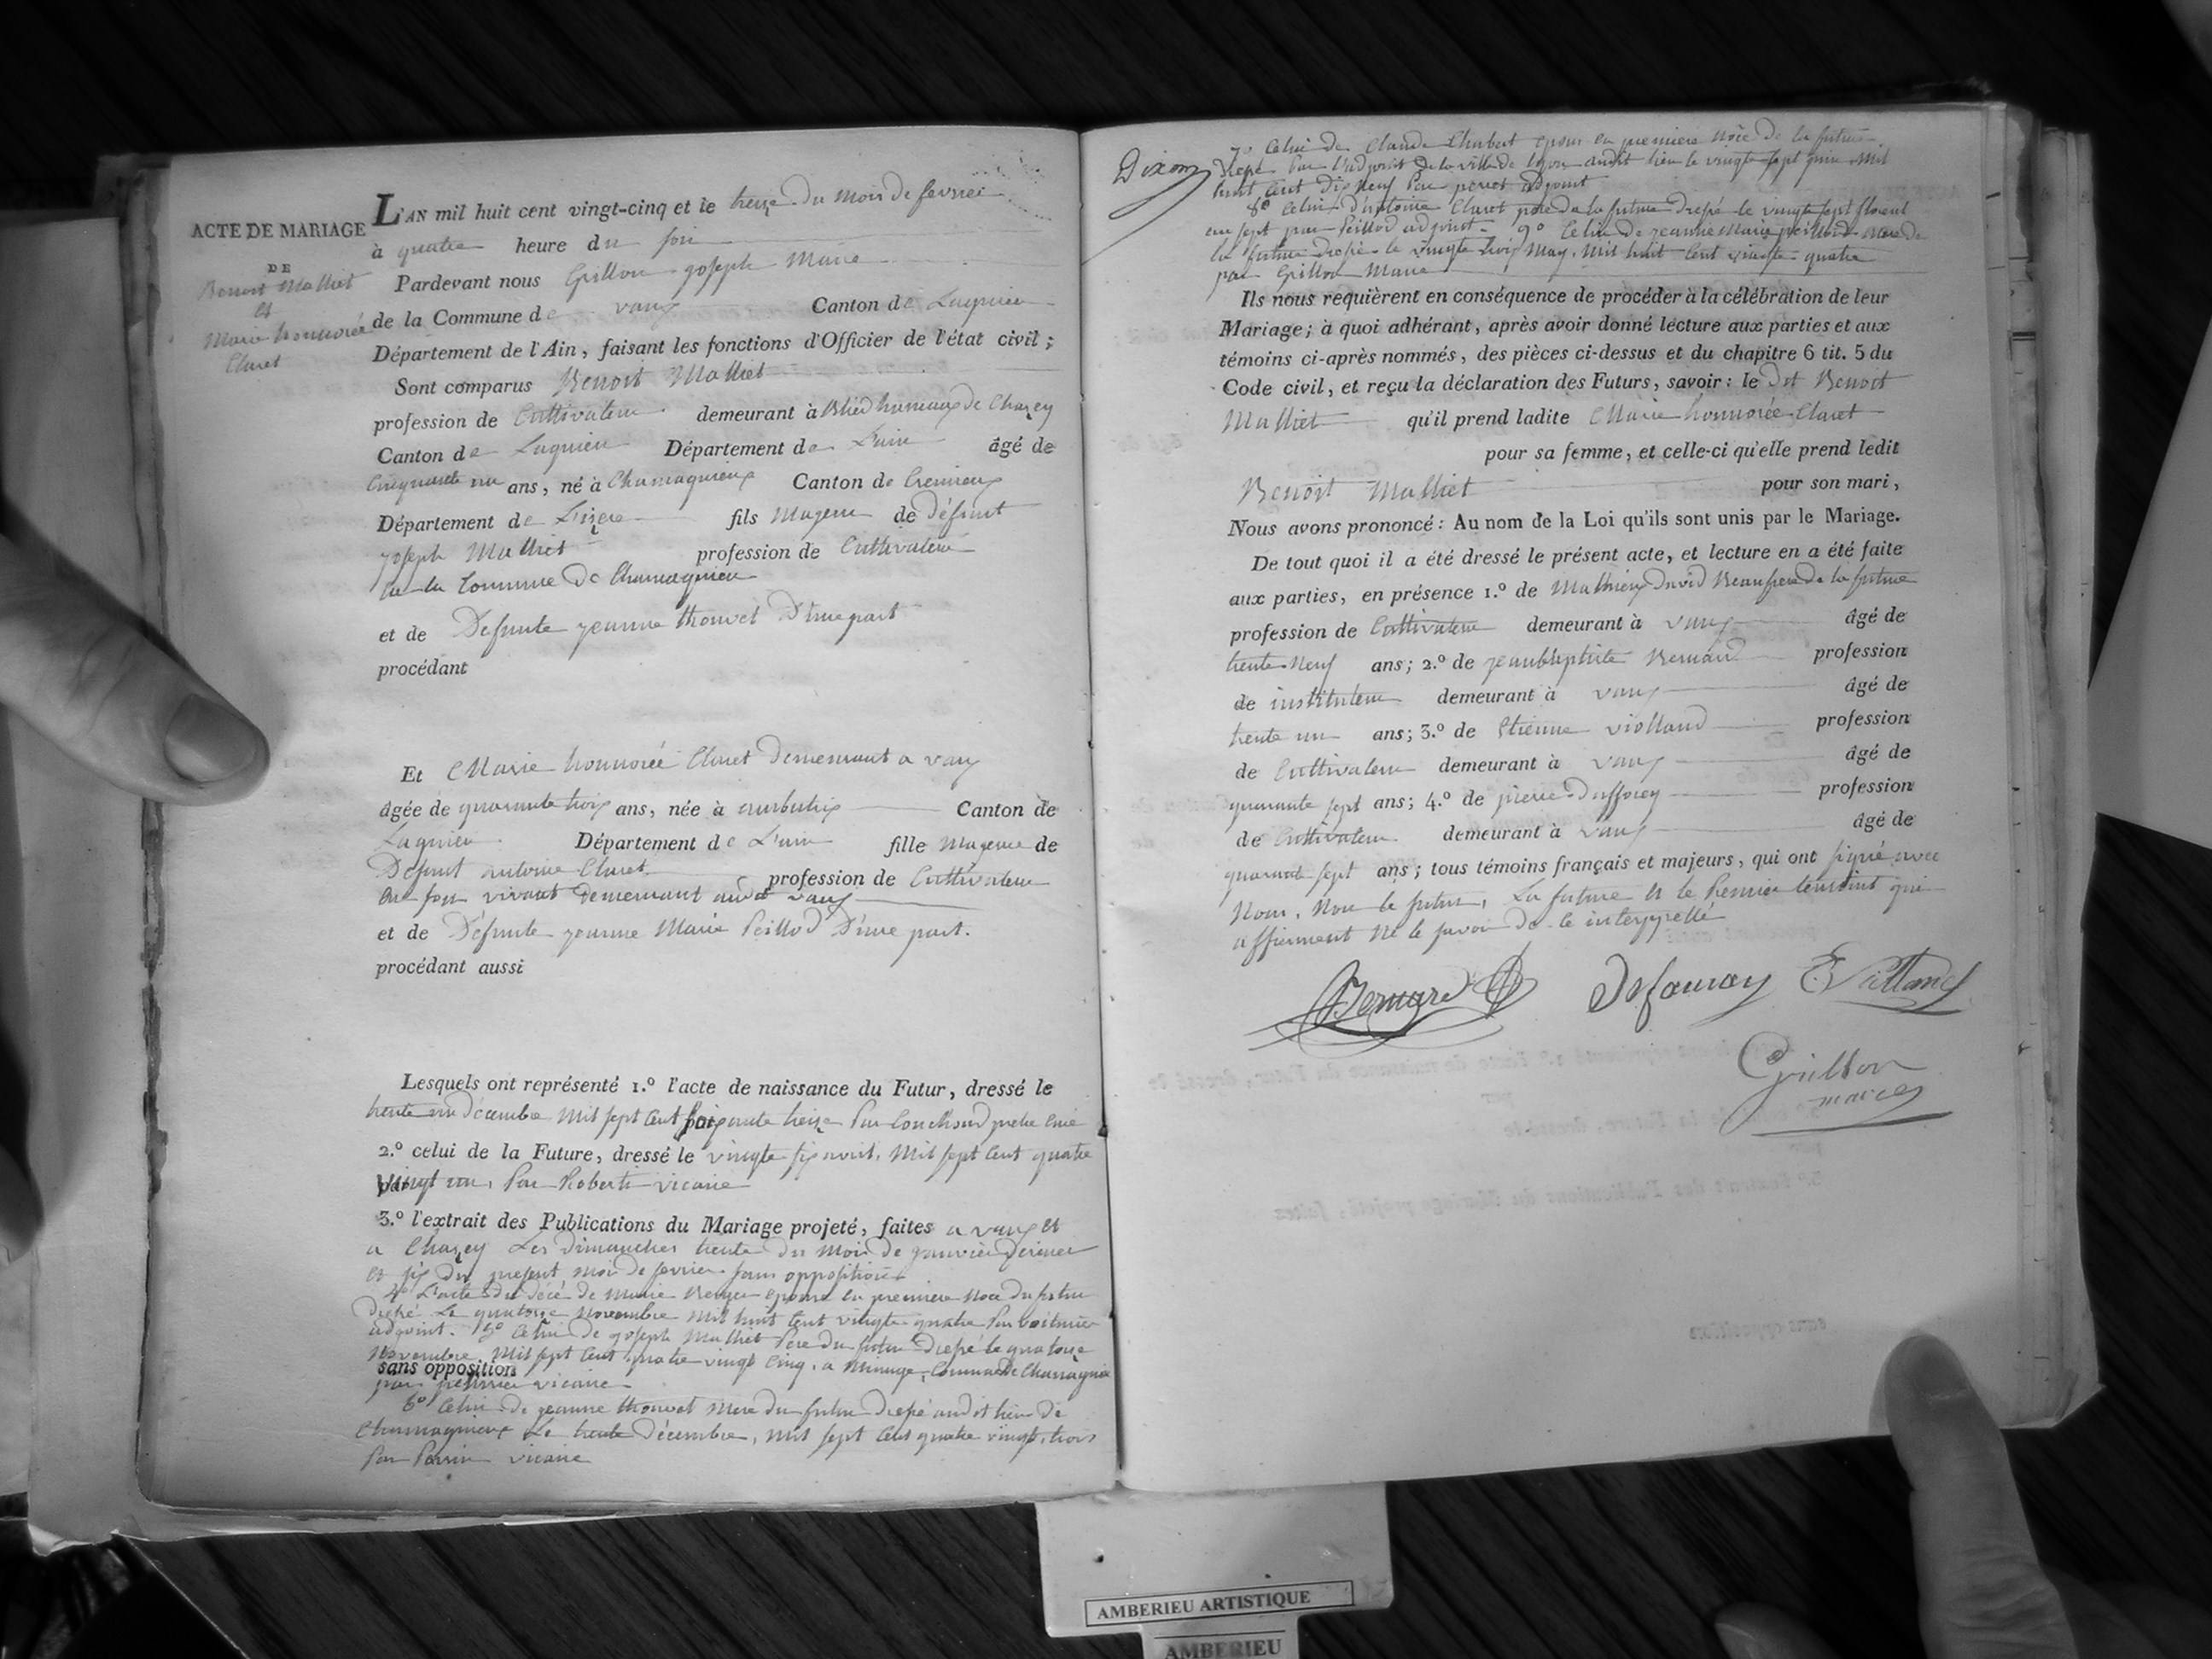 ACTE DE MARIAGE
DE
Benoit Malliet
et
Marie honnorée
Claret
L'AN mil huit cent vingt-cinq et le treize du mois de fevrier
à quatre heure du soir
Pardevant nous Grillon Joseph Maire
de la Commune de vaux Canton de Lagnieu
Département de l'Ain, faisant les fonctions d'Officier de l'état civil;
Sont comparus Benoit Malliet
profession de Cultivateur demeurant à hameaux de Chazey
Canton de Lagnieu Département de L'ain âgé de
Cinquante un ans, né à Chamagnieux Canton de Cremieux
Département de L'izere fils Majeur de défunt
joseph Malliet profession de Cultivateur
la Commune de Chamagnieu
et de Defunte jeanne thouvet D'une part
procédant
Et Marie honnorée Claret demeurant a vaux
âgée de quarante trois ans, née à ambutrix Canton de
Lagnieu Département de L'ain fille Majeure de
Defunt antoine Claret profession de Cultivateur
en son vivant demeurant audit vaux
et de Défunte jeanne Marie Peillod D'une part.
procédant aussi
Lesquels ont représenté 1.º l'acte de naissance du Futur, dressé le
trente un décembre Mil sept Cent soixante treize Par Couchoud pretre Curé
2.º celui de la Future, dressé le vingte six avril, Mil sept Cent quatre
vingt un, Par Robert vicaire
3.º l'extrait des Publications du Mariage projeté, faites a vaux et
a Chazey Les Dimanches trente du mois de janvier dernier
et six du present moi de fevrier sans opposition
4º L'acte du décé de Marie epouse en premiere noce du futur
dressé Le quatorze Novembre Mil huit Cent vingte quatre Par
adjoint. 5º Celui de joseph Malliet Pere du futur dressé le quatorze
Novembre Mil sept Cent quatre vingt Cinq, a Commune De Chamagnieu
sans opposition
par vicaire
6º Celui de jeanne thouvet Mere du futur dressé audit lieu de
Chamagnieux Le trente Décembre, Mil sept Cent quatre vingt trois
Par Perrin vicaire
Dixon
7º Celui de Claude Chubert epoux en premiere nôce de la future
dressé Par l'adjoint de la ville de lyon audit lieu le vingte sept juin Mil
huit Cent dix Neuf Par adjoint
8º Celui d'antoine Claret pere de la future dressé le vingte sept floreal
an sept par Peillod adjoint. 9º Celui de jeanne Marie peillod Mere de
la future dressé le vingte trois May, Mil huit Cent vingte quatre
par Grillon Maire
Ils nous requièrent en conséquence de procéder à la célébration de leur
Mariage; à quoi adhérant, après avoir donné lecture aux parties et aux
témoins ci-après nommés, des pièces ci-dessus et du chapitre 6 tit. 5 du
Code civil, et reçu la déclaration des Futurs, savoir: le dit Benoit
Malliet qu'il prend ladite Marie honnorée Claret
pour sa femme, et celle-ci qu'elle prend ledit
Benoit Malliet pour son mari,
Nous avons prononcé: Au nom de la Loi qu'ils sont unis par le Mariage.
De tout quoi il a été dressé le présent acte, et lecture en a été faite
aux parties, en présence 1.º de Mathieux David Beaufrere de la future
profession de Cultivateur demeurant à vaux âgé de
trente Neuf ans; 2.º de jeanbaptiste Bernard profession
de instituteur demeurant à vaux âgé de
trente un ans; 3.º de Etienne violland profession
de Cultivateur demeurant à vaux âgé de
quarante sept ans; 4.º de pierre Duffourey profession
de Cultivateur demeurant à vaux âgé de
quarante sept ans; tous témoins français et majeurs, qui ont signé avec
Nous, Non le futur, La future et le Premier temoint qui
affirment Ne le savoir de ce interppellé
Bernard Dufauray E Villand
Grillon
maire
AMBERIEU ARTISTIQUE
AMBERIEU